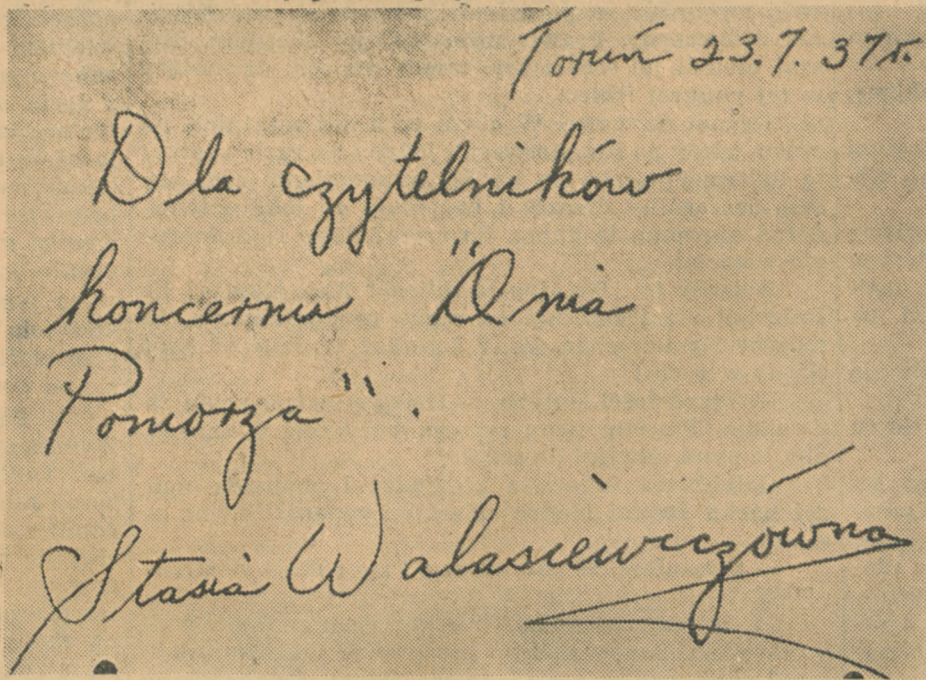 Toruń 23.7.37 r.
Dla czytelników
koncernu "Dnia
Pomorza".
Stasia Walasiewiczówna